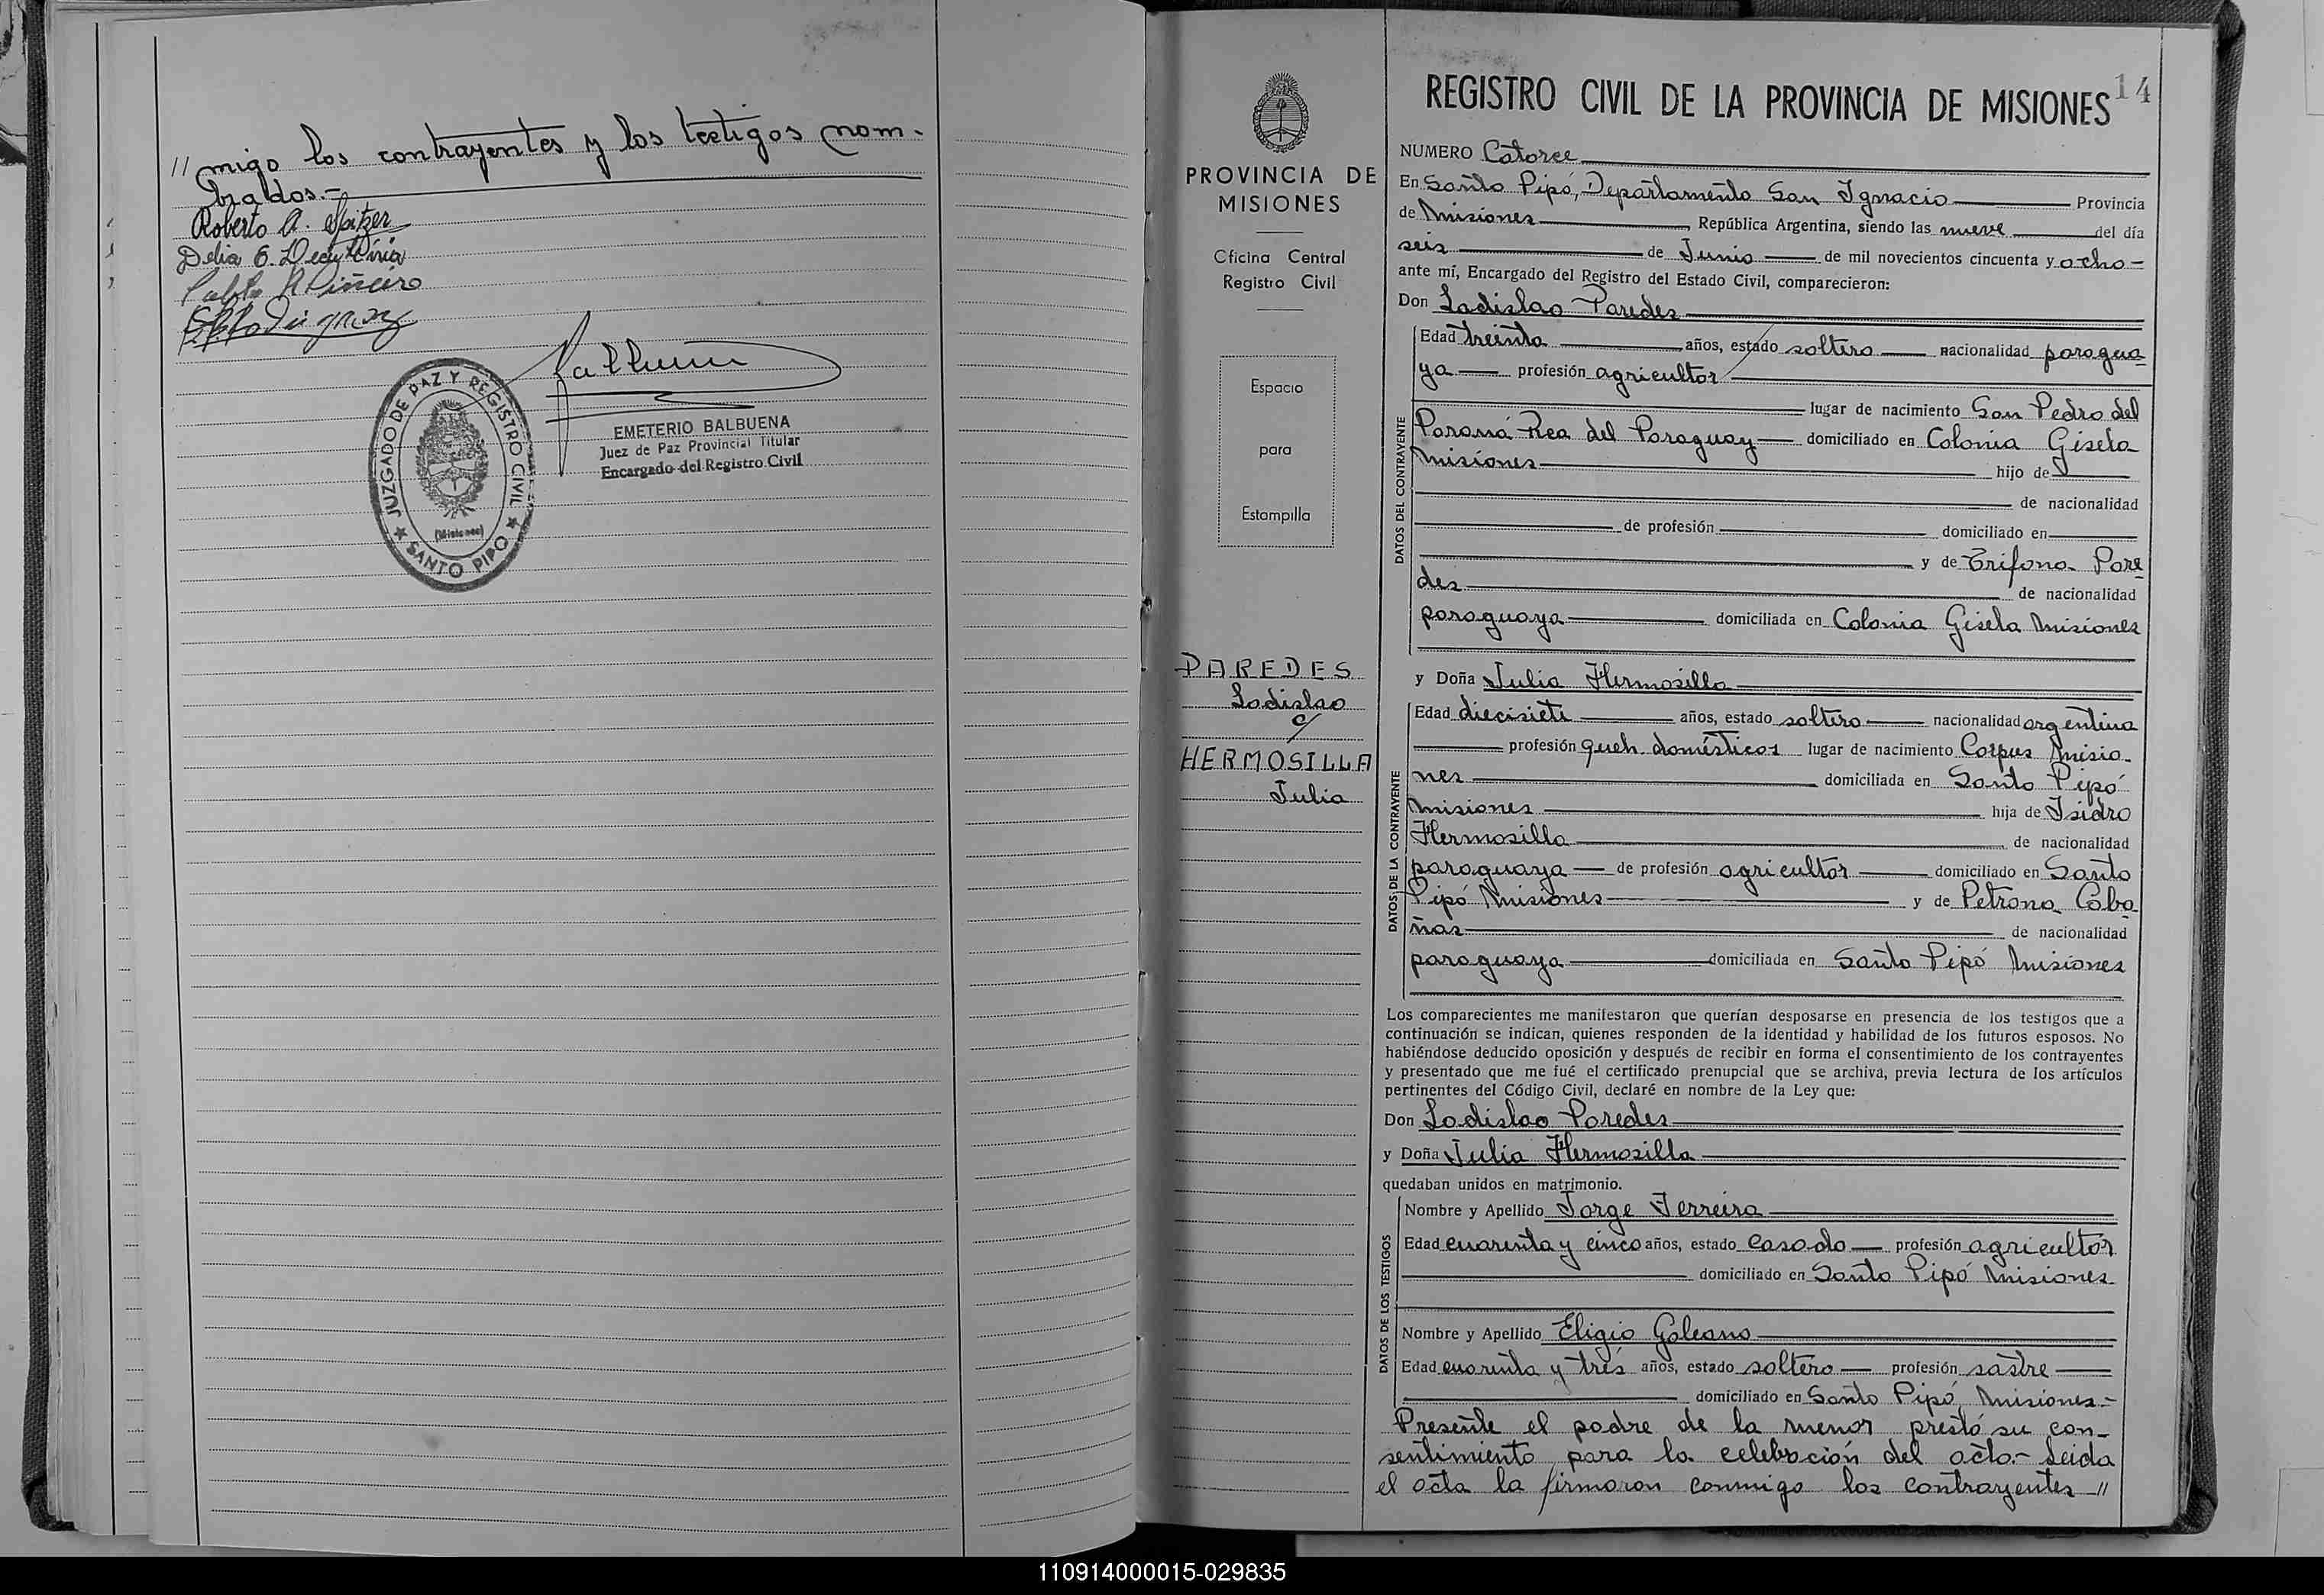 // migo los contrayentes y los testigos nom-
brados.-
Roberto A. Spitzer
Delia E.
Pablo R Piñeiro
EMETERIO BALBUENA
Juez de Paz Provincial Titular
Encargado del Registro Civil
JUZGADO DE PAZ Y REGISTRO CIVIL
(Misiones)
★ SANTO PIPO ★
PROVINCIA DE
MISIONES
Oficina Central
Registro Civil
Espacio
para
Estampilla
PAREDES
Ladislao
c/
HERMOSILLA
Julia
14
REGISTRO CIVIL DE LA PROVINCIA DE MISIONES
NUMERO Catorce
En Santo Pipó, Departamento San Ignacio Provincia
de Misiones, República Argentina, siendo las nueve del día
seis de Junio de mil novecientos cincuenta y ocho-
ante mí, Encargado del Registro del Estado Civil, comparecieron:
Don Ladislao Paredes
DATOS DEL CONTRAYENTE
Edad treinta años, estado soltero nacionalidad paragua-
ya profesión agricultor
lugar de nacimiento San Pedro del
Paraná Rca del Paraguay domiciliado en Colonia Gisela
Misiones hijo de
de nacionalidad
de profesión domiciliado en
y de Trifona Pare-
des de nacionalidad
paraguaya domiciliada en Colonia Gisela Misiones
y Doña Julia Hermosilla
DATOS DE LA CONTRAYENTE
Edad diecisiete años, estado soltera nacionalidad argentina
profesión queh. domésticos lugar de nacimiento Corpus Misio-
nes domiciliada en Santo Pipó
Misiones hija de Isidro
Hermosilla de nacionalidad
paraguaya de profesión agricultor domiciliado en Santo
Pipó Misiones y de Petrona Caba-
ñas de nacionalidad
paraguaya domiciliada en Santo Pipó Misiones
Los comparecientes me manifestaron que querían desposarse en presencia de los testigos que a
continuación se indican, quienes responden de la identidad y habilidad de los futuros esposos. No
habiéndose deducido oposición y después de recibir en forma el consentimiento de los contrayentes
y presentado que me fué el certificado prenupcial que se archiva, previa lectura de los artículos
pertinentes del Código Civil, declaré en nombre de la Ley que:
Don Ladislao Paredes
y Doña Julia Hermosilla
quedaban unidos en matrimonio.
DATOS DE LOS TESTIGOS
Nombre y Apellido Jorge Ferreira
Edad cuarenta y cinco años, estado casado profesión agricultor
domiciliado en Santo Pipó Misiones
Nombre y Apellido Eligio Galeano
Edad cuarenta y tres años, estado soltero profesión sastre
domiciliado en Santo Pipó Misiones.-
Presente el padre de la menor prestó su con-
sentimiento para la celebración del acto.- Leida
el acta la firmaron conmigo los contrayentes //
110914000015-029835